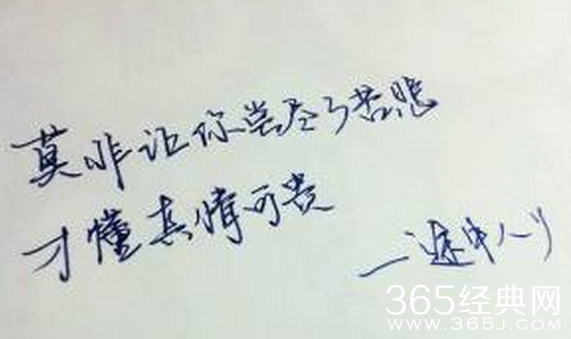 莫非让你尝尽了苦悲
才懂真情可贵
—途中人》
365经典网
www.365j.com